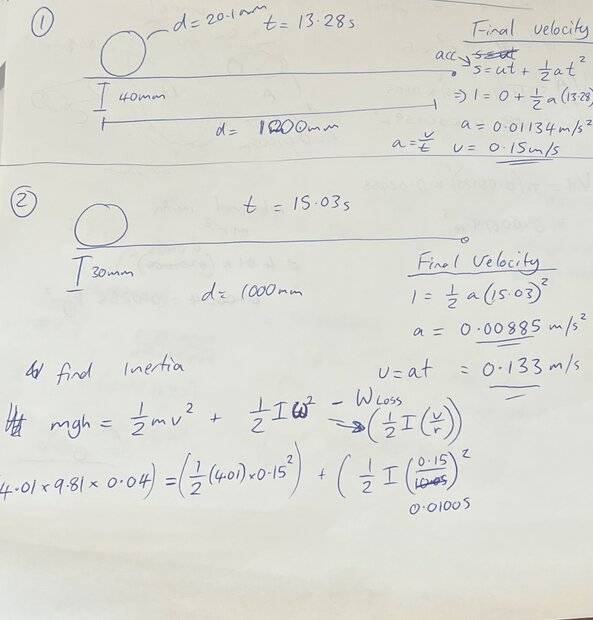 ① d = 20.1mm t = 13.28s
Final velocity
acc s = ut + ½at²
40mm
⇒ 1 = 0 + ½ a (13.28)
d = 1000mm
a = 0.01134 m/s²
a = v/t v = 0.15 m/s
② t = 15.03s
30mm
d = 1000mm
Final Velocity
1 = ½ a (15.03)²
a = 0.00885 m/s²
v = at = 0.133 m/s
find Inertia
mgh = ½mv² + ½Iω² - WLoss
(½ I (v/r))
4.01 x 9.81 x 0.04) = (½ (4.01) x 0.15²) + (½ I (0.15/0.01005)²